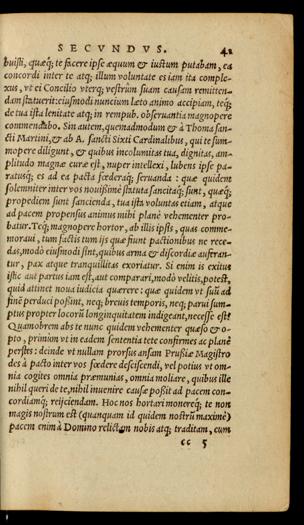 SECVNDVS. 42
buisti, quæq; te facere ipse æquum & iustum putabam, ea
concordi inter te atq; illum voluntate es iam ita comple-
xus, vt ei Concilio vterq; vestrûm suam causam remitten-
dam statuerit: eiusmodi nuncium læto animo accipiam, teq;
de tua ista lenitate atq; in rempub. obseruantia magnopere
commendabo. Sin autem, quemadmodum & à Thoma san-
cti Martini, & ab A. sancti Sixti Cardinalibus, qui te sum-
mopere diligunt, & quibus incolumitas tua, dignitas, am-
plitudo magnæ curæ est, nuper intellexi, lubens ipse pa-
ratusq; es ad ea pacta fœderaq; seruanda: quæ quidem
solemniter inter vos nouißimè iṡtituta sancitaq; sunt, quæq;
propediem sunt sancienda, tua ista voluntas etiam, atque
ad pacem propensus animus mihi planè vehementer pro-
batur. Teq; magnopere hortor, ab illis ipsis, quas comme-
moraui, tum factis tum ijs quæ fiunt pactionibus ne rece-
das, modò eiusmodi sint, quibus arma & discordiæ auferan-
tur, pax atque tranquillitas exoriatur. Si enim is exitus
istic aut partus iam est, aut comparari, modò velitis, potest,
quid attinet noua iudicia quærere: quæ quidem vt suũ ad
finẽ perduci poßint, neq; breuis temporis, neq; parui sum-
ptus propter locorũ longinquitatem indigeant, necesse est?
Quamobrem abs te nunc quidem vehementer quæso & o-
pto, primùm vt in eadem sententia tete confirmes ac planè
perstes: deinde vt nullam prorsus ansam Prußiæ Magistro
des à pacto inter vos fœdere desciscendi, vel potius vt om-
nia cogites omnia præmunias, omnia moliare, quibus ille
nihil queri de te, nihil inuenire causæ poßit ad pacem con-
cordiamq; reijciendam. Hoc nos hortari monereq; te non
magis nostrum est (quanquam id quidem nostrũ maximè)
pacem enim à Domino relictam nobis atq; traditam, cum
cc 5